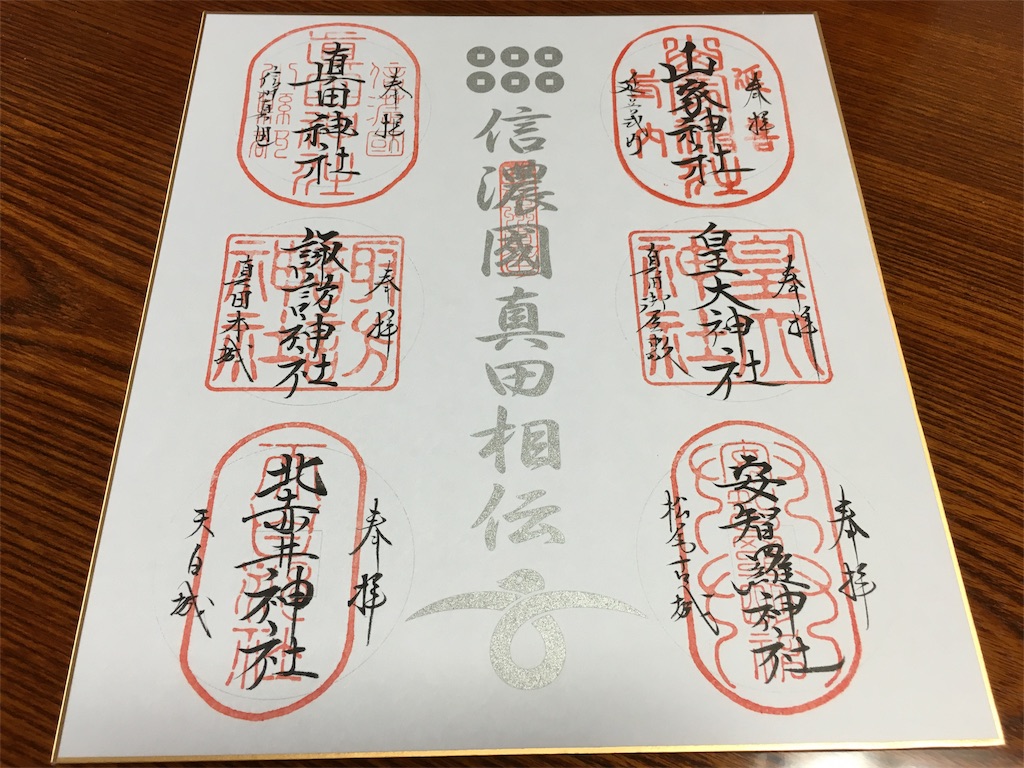 奉拝
山家神社
奉拝
皇大神社
真田御屋敷
奉拝
安智羅神社
松尾古城
信濃國真田相伝
奉拝
真田神社
奉拝
諏訪神社
真田本城
奉拝
北赤井神社
天白城